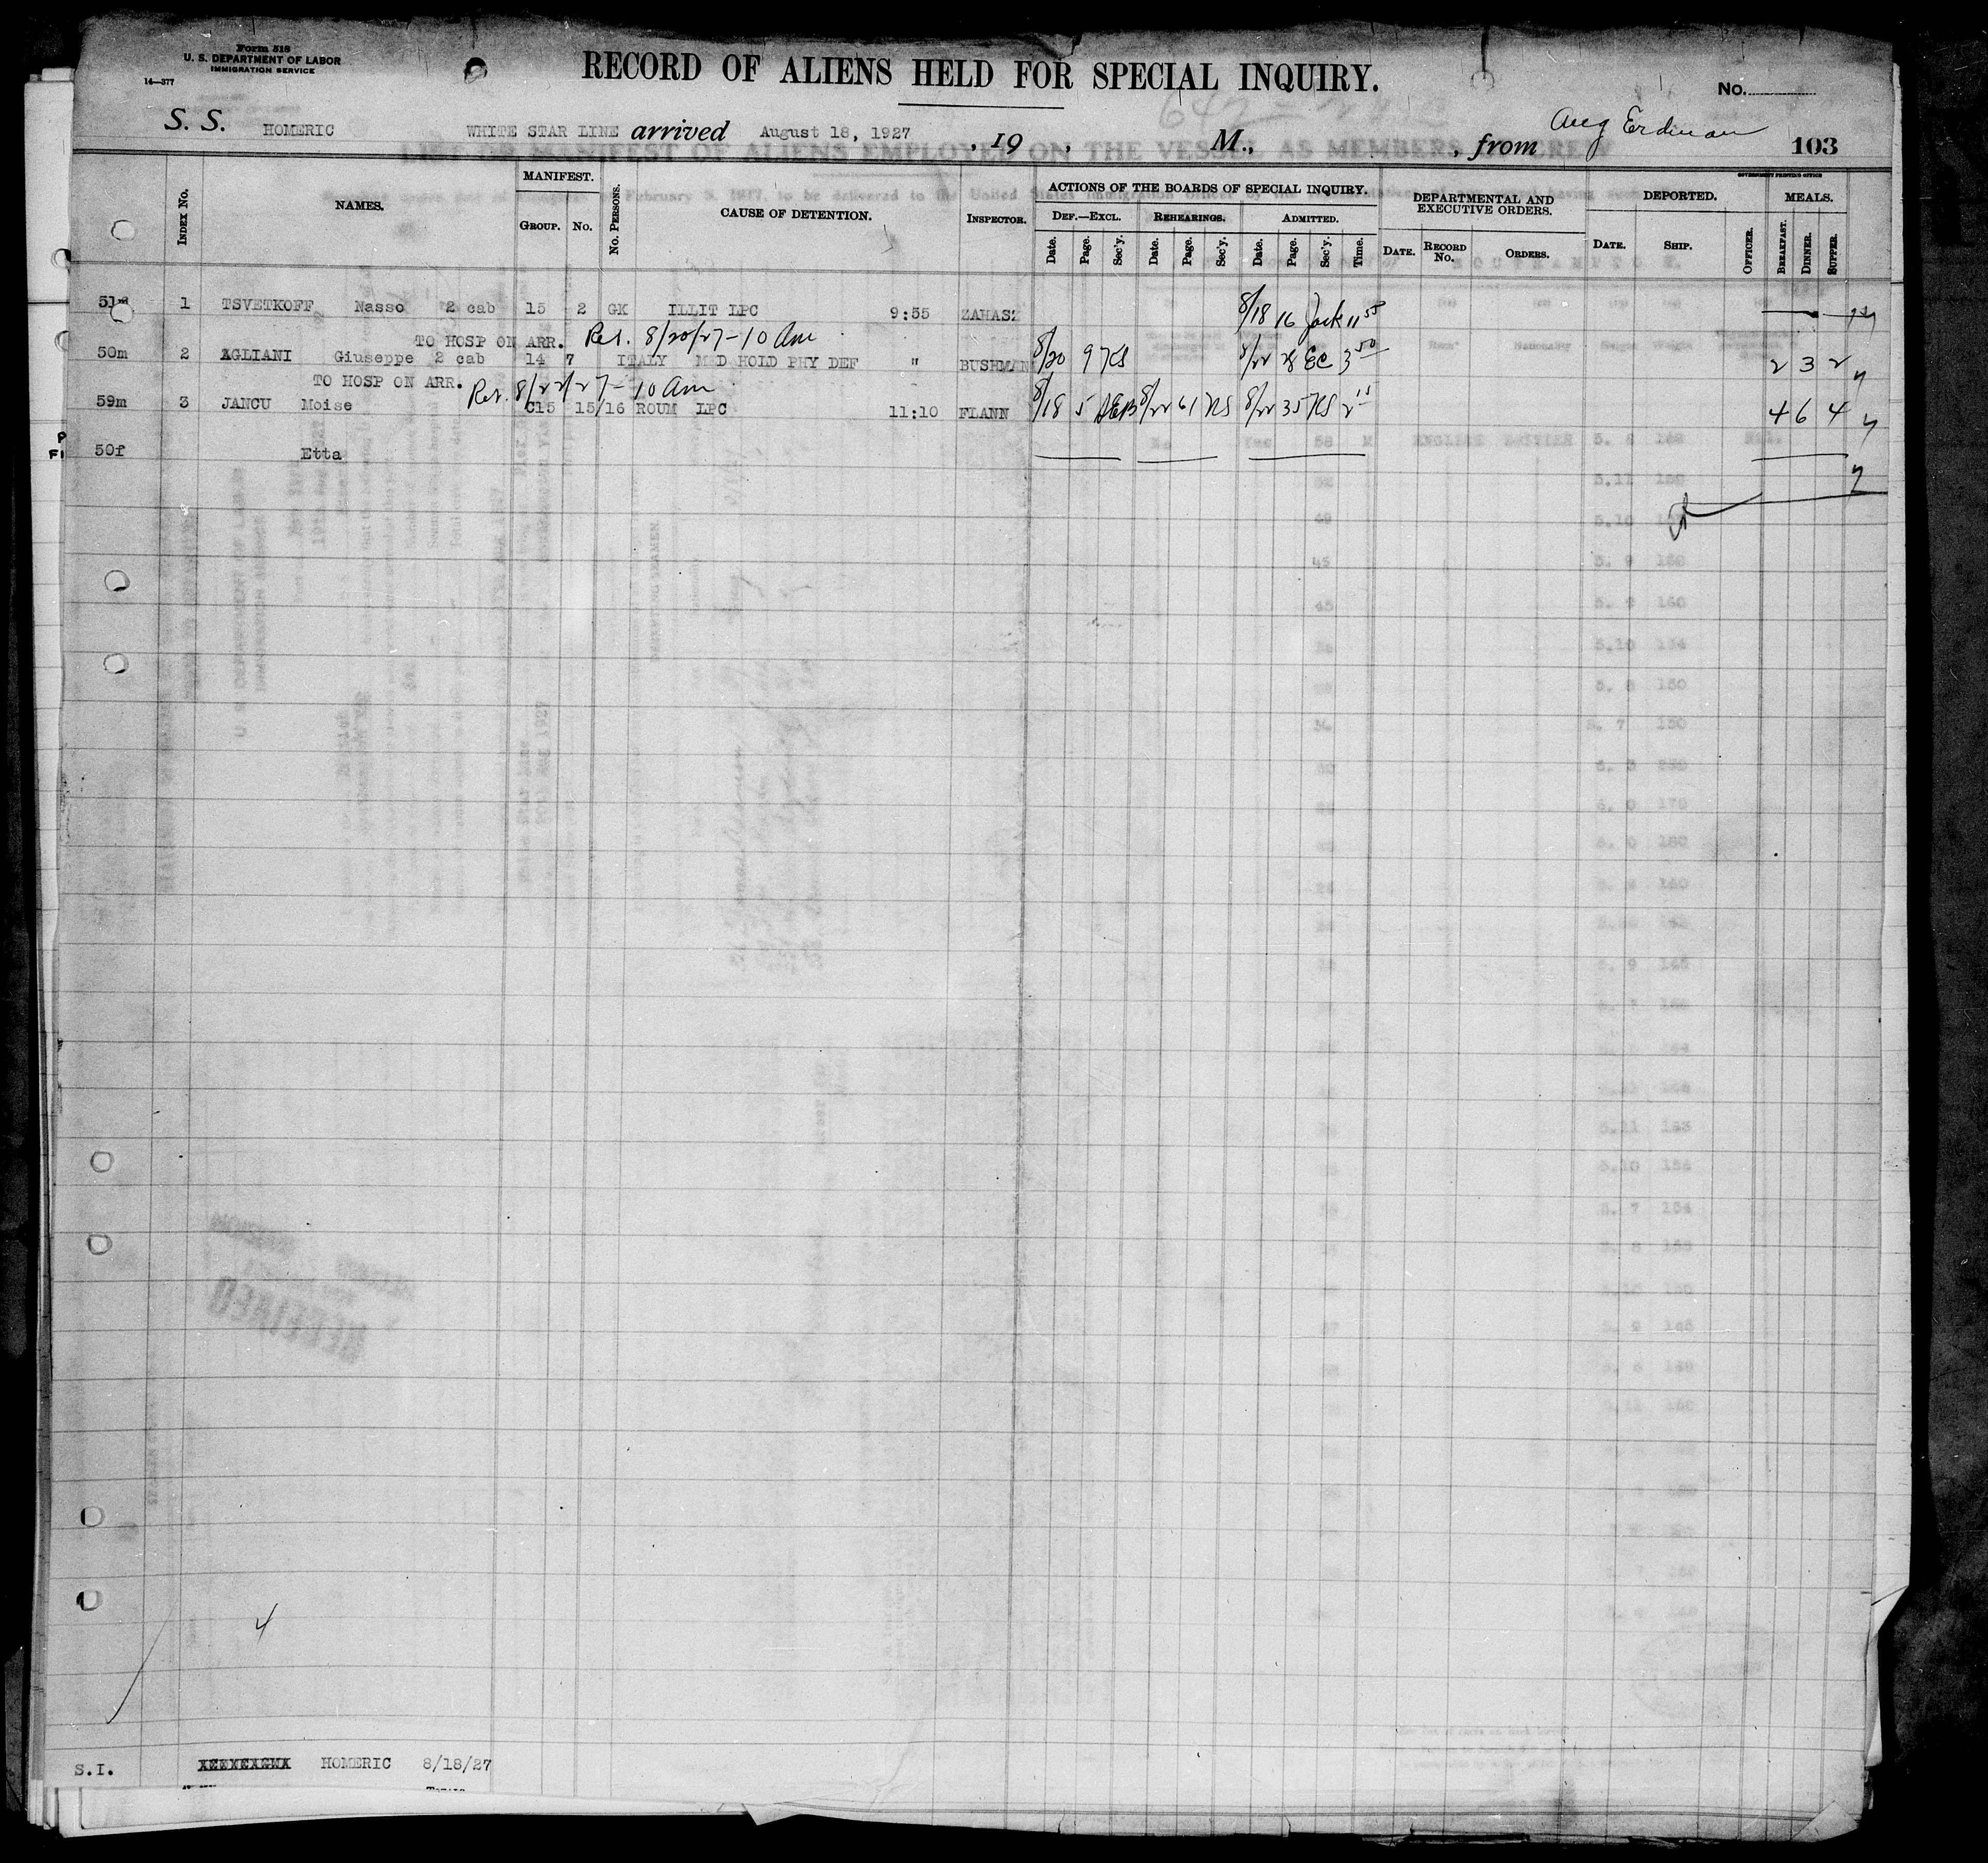 Form 518
U. S. DEPARTMENT OF LABOR
IMMIGRATION SERVICE
14—377
RECORD OF ALIENS HELD FOR SPECIAL INQUIRY.
No.
S. S. HOMERIC WHITE STAR LINE arrived August 18, 1927 , 19 , M., , from Aug Erdman 103
GOVERNMENT PRINTING OFFICE
Index No. NAMES. MANIFEST. No. Persons. CAUSE OF DETENTION. Inspector. ACTIONS OF THE BOARDS OF SPECIAL INQUIRY. DEPARTMENTAL AND EXECUTIVE ORDERS. DEPORTED. MEALS.
Group. No. Def.—Excl. Rehearings. Admitted.
Date. Page. Sec'y. Date. Page. Sec'y. Date. Page. Sec'y. Time. Date. Record No. Orders. Date. Ship. Officer. Breakfast. Dinner. Supper.
1 TSVETKOFF Nasso 2 cab 15 2 GK ILLIT LPC 9:55 ZAHASZ 8/18 16 Jack 11 55
TO HOSP ON ARR. Ret. 8/20/27 - 10 Am
50m 2 AGLIANI Giuseppe 2 cab 14 7 ITALY MED HOLD PHY DEF " BUSHMAN 8/20 9 KS 8/22 28 EC 3 50 2 3 2
TO HOSP ON ARR. Ret. 8/22/27 - 10 Am
59m 3 JANCU Moise C15 15/16 ROUM LPC 11:10 FLANN 8/18 5 AEB 8/22 61 KS 8/22 35 KS 2 15 4 6 4
50f Etta
4
S.I. HOMERIC 8/18/27